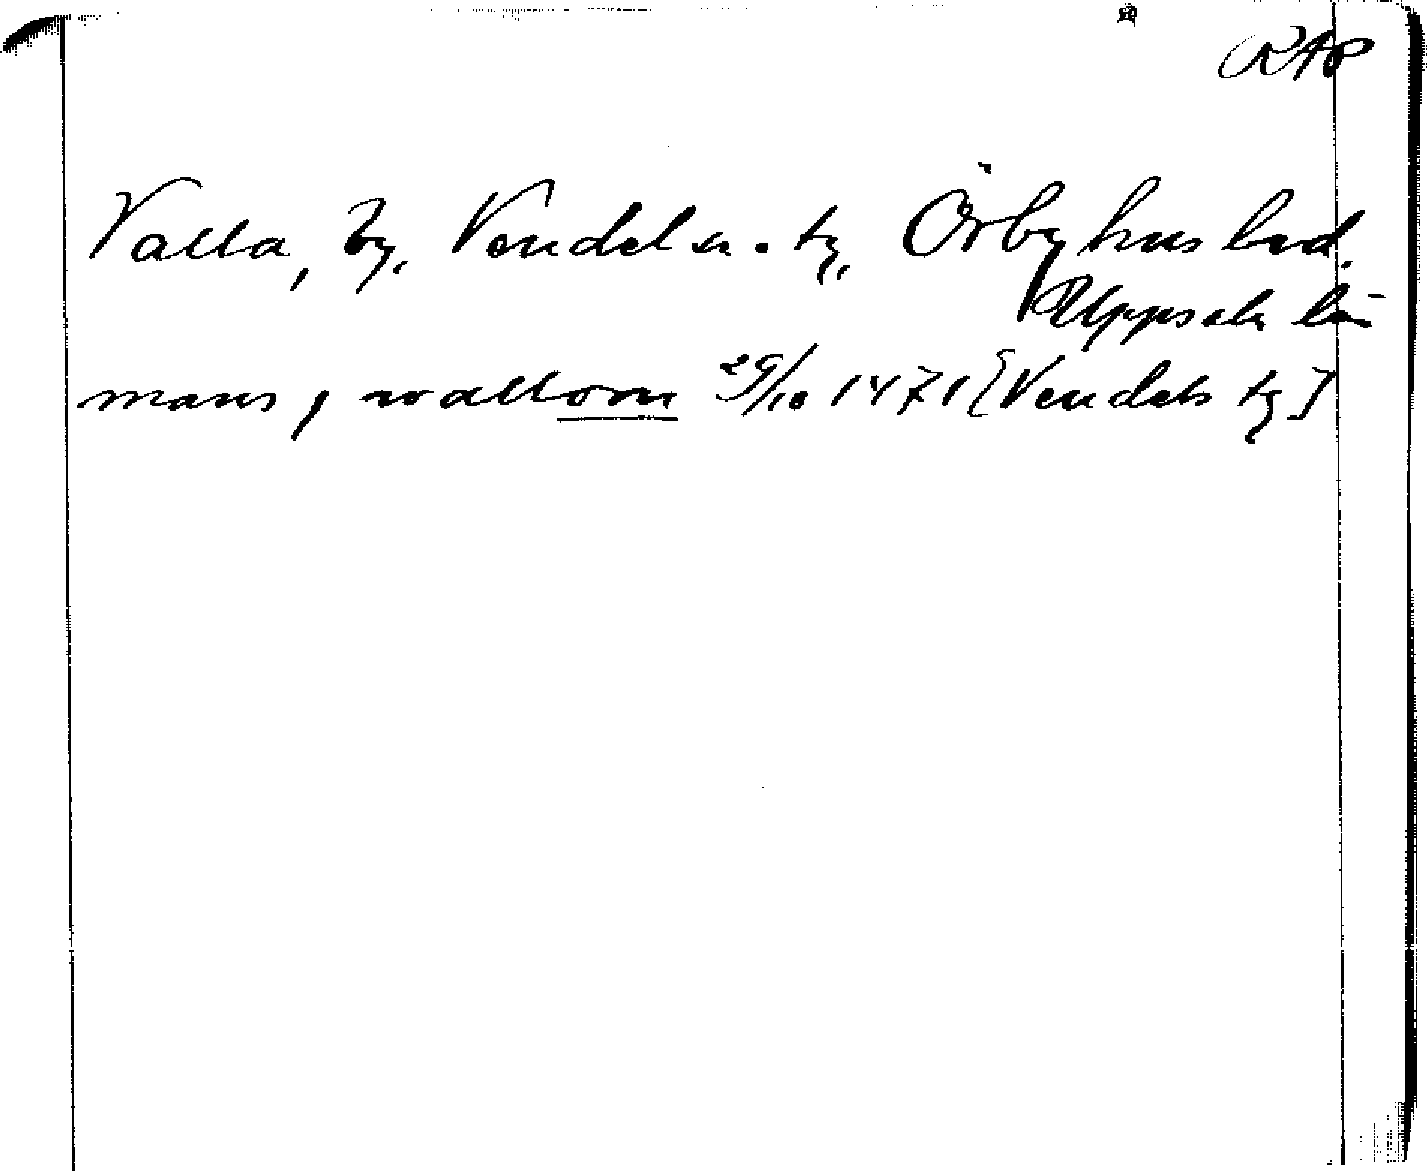 RAP
Valla, by, Vendels s. o. tg, Örbyhus hd.
Uppsala län
mans j wallom 29/10 1471 [Vendels tg]